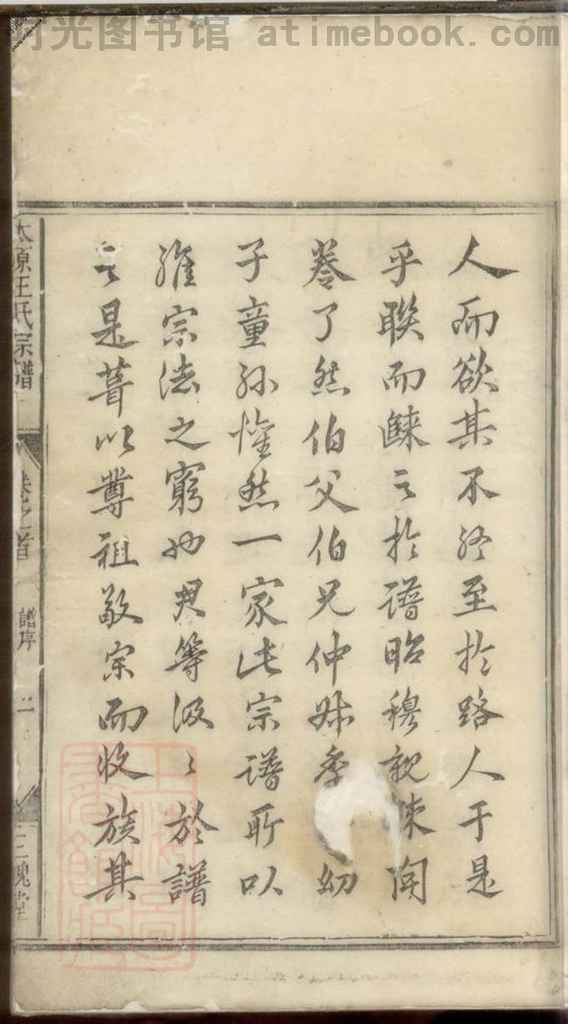 时光图书馆 atimebook.com
人而欲其不终至於路人于是
乎联而继之於谱昭穆親疎闿
卷了然伯父伯兄仲妹季幼
子童孙惟然一家此宗谱所以
维宗法之穷也君等汲〻於譜
之是葺以尊祖敬宗而收族其
太原王氏宗譜
卷之首
譜序
二
三槐堂